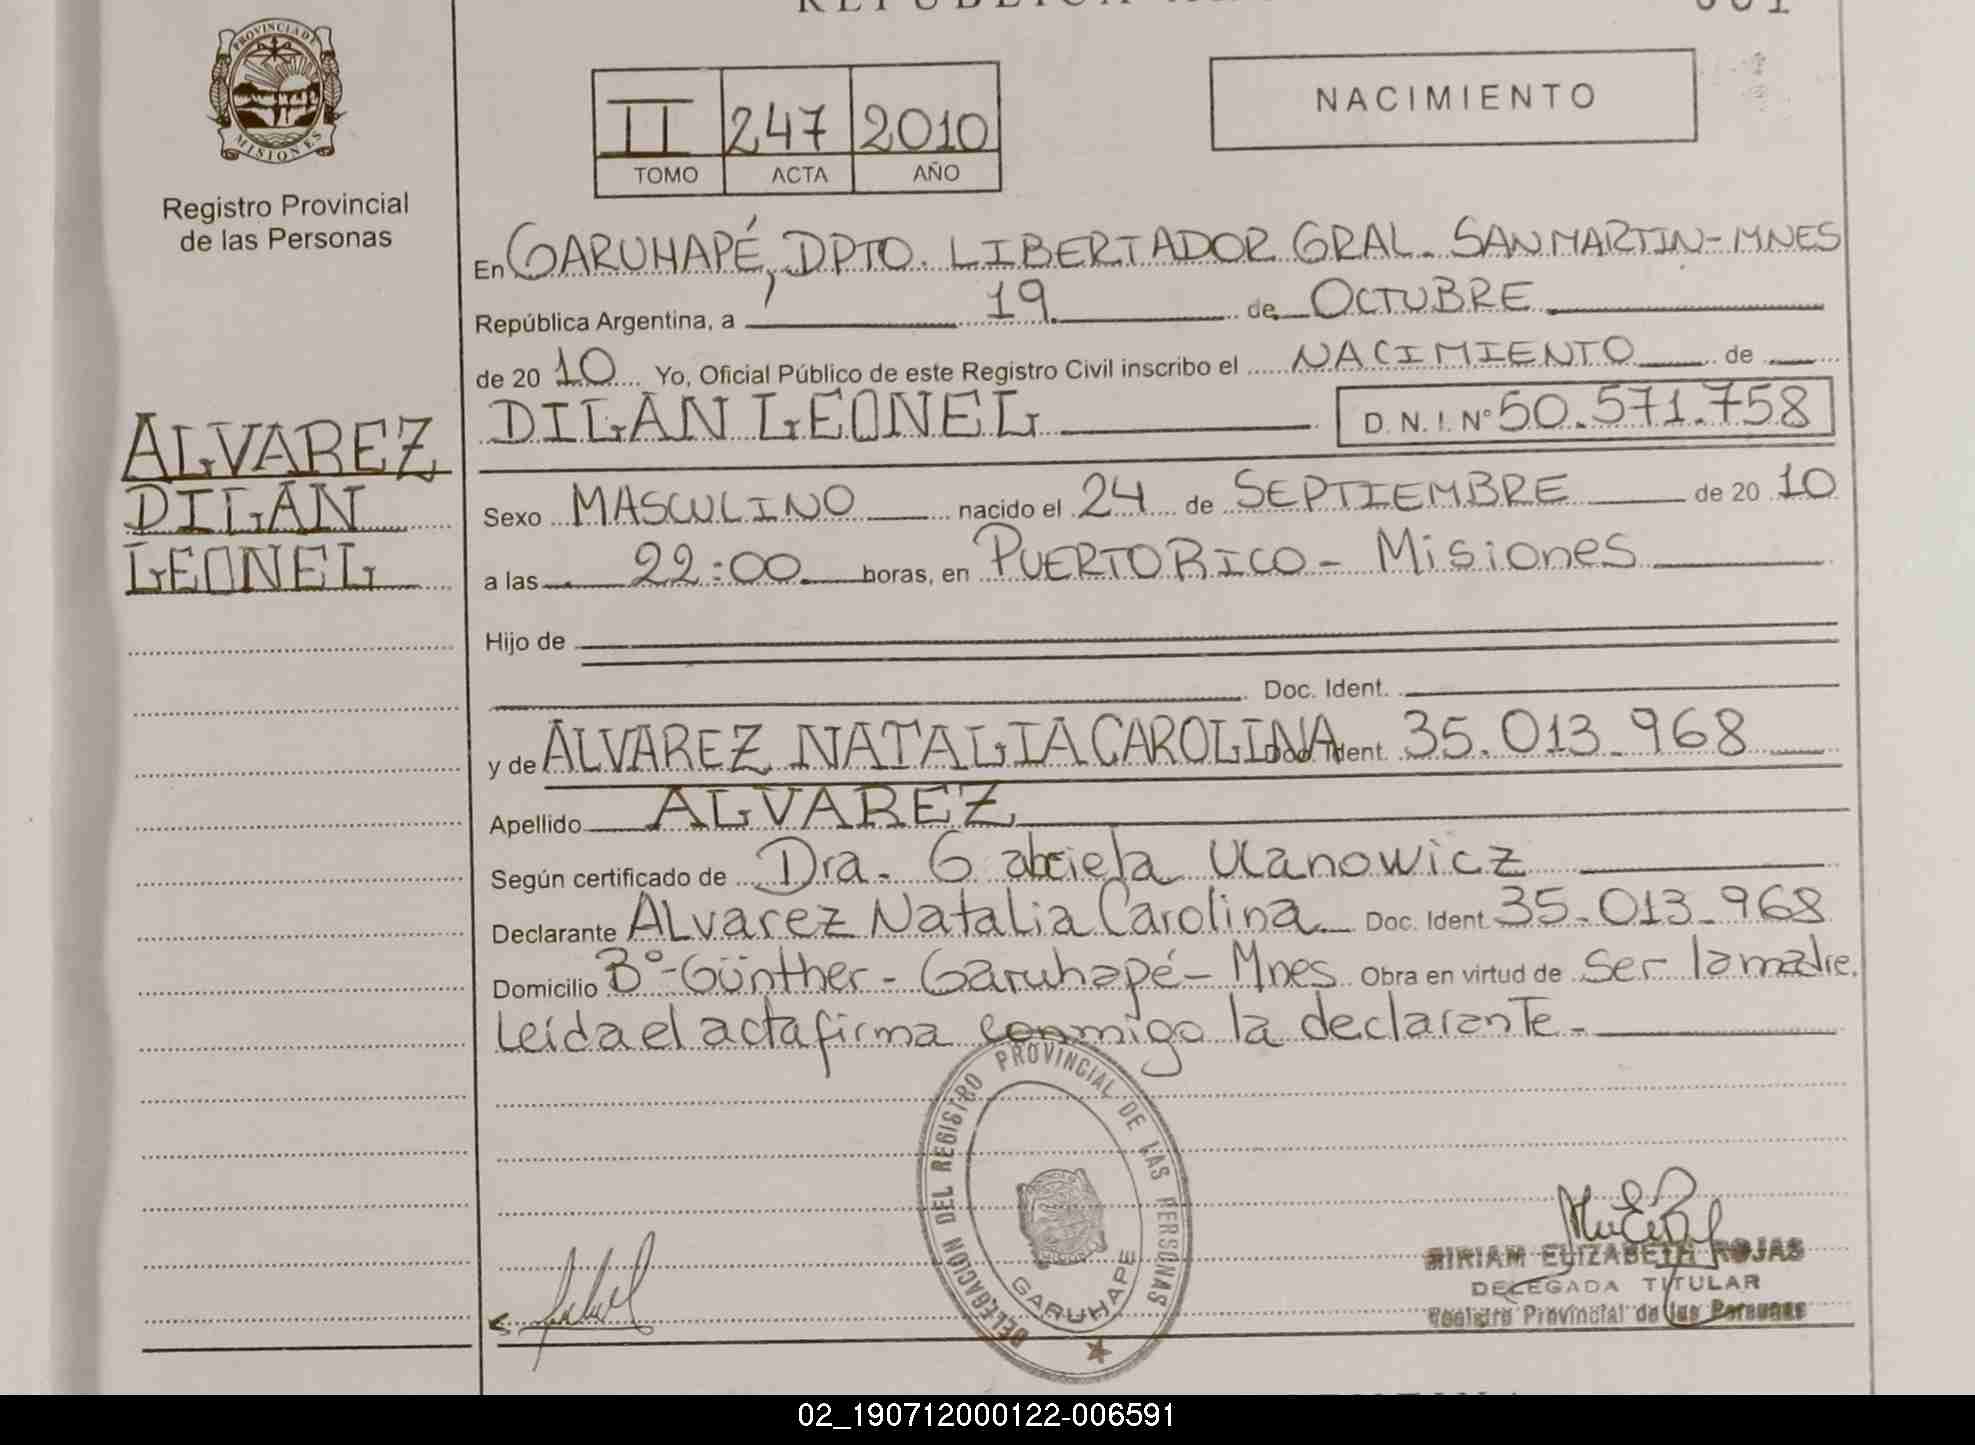 PROVINCIA DE
MISIONES
Registro Provincial
de las Personas
ALVAREZ
DILAN
LEONEL
REPUBLICA
001
II 247 2010
TOMO ACTA AÑO
NACIMIENTO
En GARUHAPÉ, DPTO. LIBERTADOR GRAL. SAN MARTIN - MNES
República Argentina, a 19 de OCTUBRE
de 20 10 Yo, Oficial Público de este Registro Civil inscribo el NACIMIENTO de
DILAN LEONEL D.N.I. Nº 50.571.758
Sexo MASCULINO nacido el 24 de SEPTIEMBRE de 20 10
a las 22:00 horas, en PUERTO RICO - Misiones
Hijo de
Doc. Ident.
y de ALVAREZ NATALIA CAROLINA Doc. Ident. 35.013.968
Apellido ALVAREZ
Según certificado de Dra. Gabriela Ulanowicz
Declarante ALvarez Natalia Carolina Doc. Ident. 35.013.968
Domicilio Bº - Günther - Garuhapé - Mnes. Obra en virtud de ser la madre.
Leída el acta firma conmigo la declarante.-
DELEGACION DEL REGISTRO PROVINCIAL DE LAS PERSONAS
GARUHAPE
MIRIAM ELIZABETH ROJAS
DELEGADA TITULAR
Registro Provincial de las Personas
02_190712000122-006591